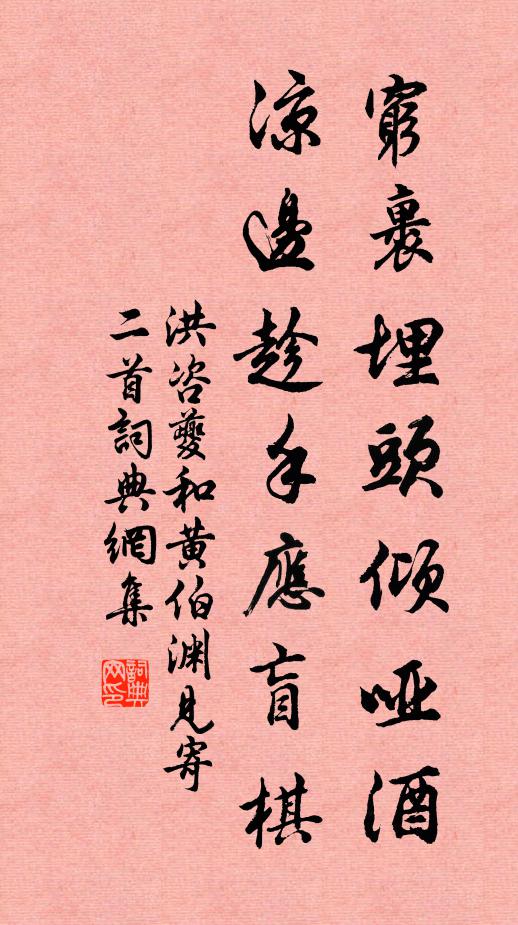 窮裏埋頭傾啞酒
涼邊趁手應盲棋
洪咨夔和黃伯淵見寄
二首詞典網集
詞典
网印